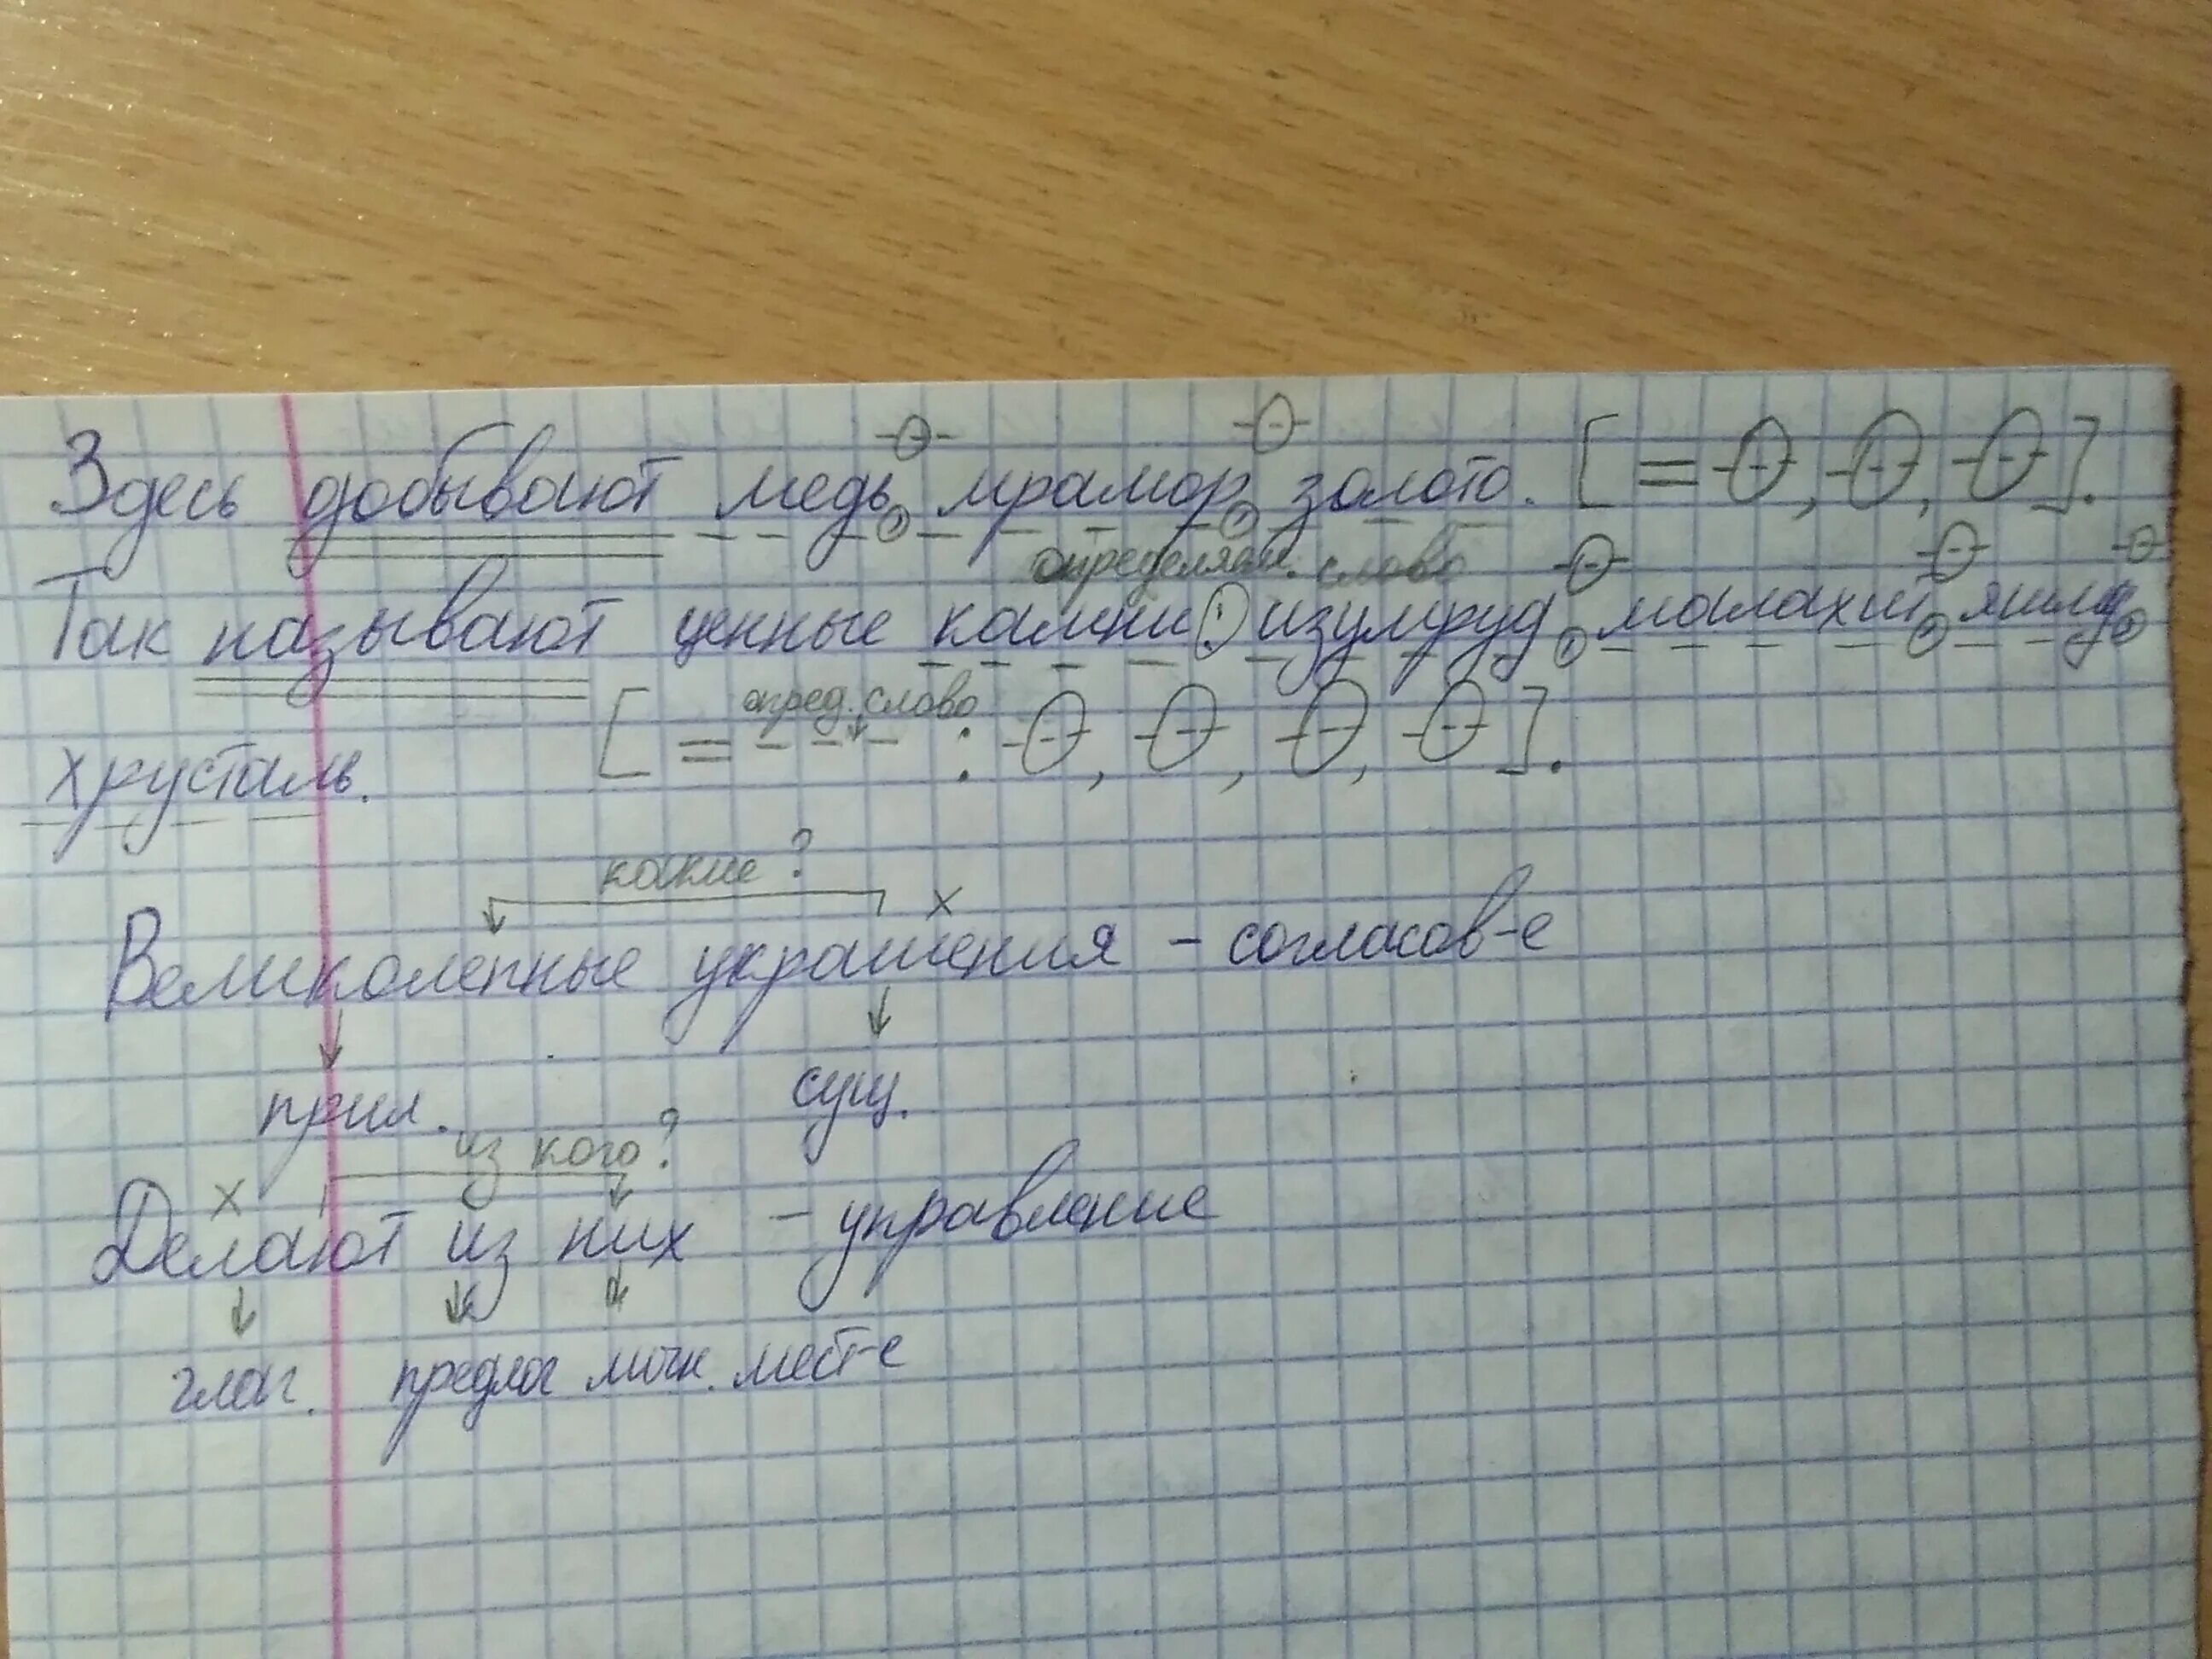 Здесь добывают медь, мрамор, золото. [= О, О, О].
определяем. слово
Так называют ценные камни: изумруд, малахит, яшма,
хрусталь. [= опред. слово : О, О, О, О].
какие? х
Великолепные украшения - согласов-е
прил. сущ.
х из кого?
Делают из них - управление
глаг. предлог личн. мест-е